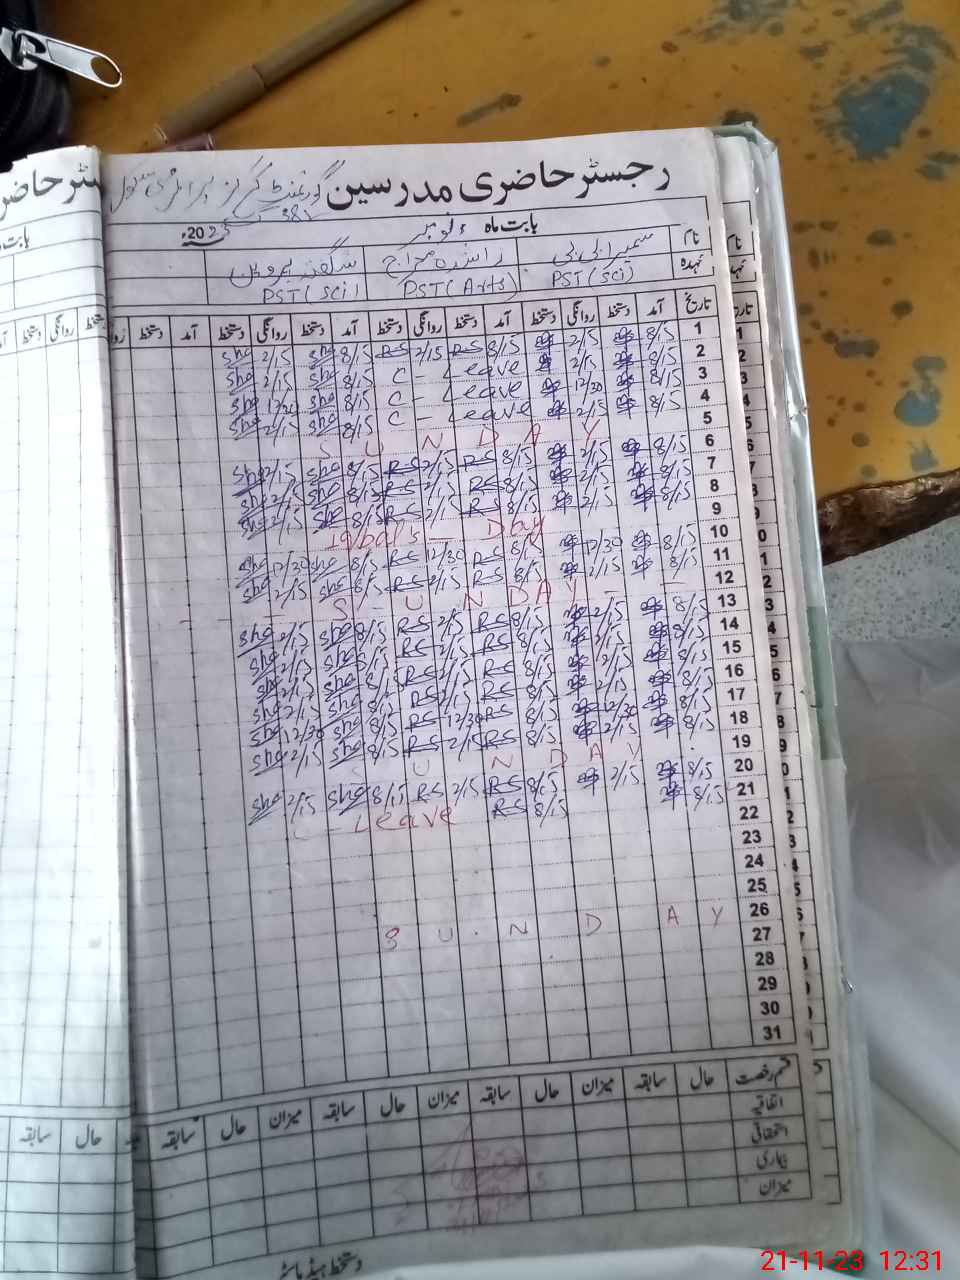 رجسٹر حاضری مدرسین گورنمنٹ گرلز پرائمری سکول
بابت ماہ نومبر 2023ء
نام سمیرا بی بی راشدہ معراج شگفتہ پروین
عہدہ PST (Sci) PST (Arts) PST (Sci)
تاریخ آمد دستخط روانگی دستخط آمد دستخط روانگی دستخط آمد دستخط روانگی دستخط آمد دستخط
1 8/15 2/15 8/15 RS 2/15 RS 8/15 She 2/15 She
2 8/15 2/15 C - Leave 8/15 She 2/15 She
3 8/15 12/30 C - Leave 8/15 She 12/30 She
4 8/15 2/15 C - Leave 8/15 She 2/15 She
5 SUNDAY
6 8/15 2/15 8/15 RS 2/15 RS 8/15 She 2/15 She
7 8/15 2/15 8/15 RS 2/15 RS 8/15 She 2/15 She
8 8/15 2/15 8/15 RS 2/15 RS 8/15 She 2/15 She
9 Iqbal's Day
10 8/15 12/30 8/15 RS 12/30 RS 8/15 She 12/30 She
11 8/15 2/15 8/15 RS 2/15 RS 8/15 She 2/15 She
12 SUNDAY
13 8/15 2/15 8/15 RS 2/15 RS 8/15 She 2/15 She
14 8/15 2/15 8/15 RS 2/15 RS 8/15 She 2/15 She
15 8/15 2/15 8/15 RS 2/15 RS 8/15 She 2/15 She
16 8/15 2/15 8/15 RS 2/15 RS 8/15 She 2/15 She
17 8/15 12/30 8/15 RS 12/30 RS 8/15 She 12/30 She
18 8/15 2/15 8/15 RS 2/15 RS 8/15 She 2/15 She
19 SUNDAY
20 8/15 2/15 8/15 RS 2/15 RS 8/15 She 2/15 She
21 8/15 8/15 RS C - Leave
22
23
24
25
26 SUNDAY
27
28
29
30
31
قسم رخصت حال سابقہ میزان حال سابقہ میزان حال سابقہ میزان حال سابقہ
اتفاقیہ
استحقاقی
بیماری
میزان
دستخط ہیڈ ماسٹر
21-11-23 12:31